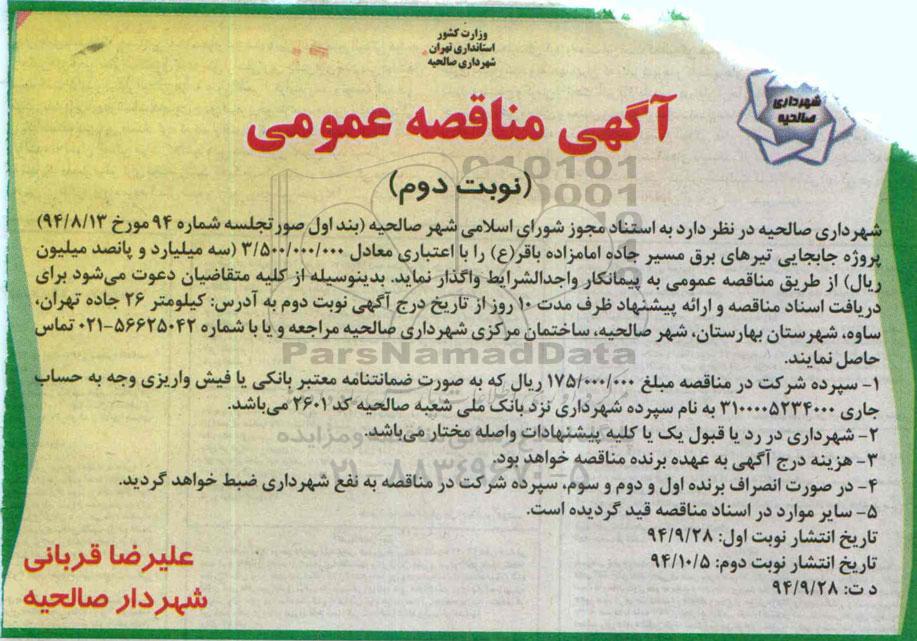 وزارت کشور
استانداری تهران
شهرداری صالحیه
شهرداری
صالحیه
آگهی مناقصه عمومی
(نوبت دوم)
شهرداری صالحیه در نظر دارد به استناد مجوز شورای اسلامی شهر صالحیه (بند اول صورتجلسه شماره ۹۴ مورخ ۹۴/۸/۱۳)
پروژه جابجایی تیرهای برق مسیر جاده امامزاده باقر(ع) را با اعتباری معادل ۳/۵۰۰/۰۰۰/۰۰۰ (سه میلیارد و پانصد میلیون
ریال) از طریق مناقصه عمومی به پیمانکار واجدالشرایط واگذار نماید. بدینوسیله از کلیه متقاضیان دعوت می‌شود برای
دریافت اسناد مناقصه و ارائه پیشنهاد ظرف مدت ۱۰ روز از تاریخ درج آگهی نوبت دوم به آدرس: کیلومتر ۲۶ جاده تهران،
ساوه، شهرستان بهارستان، شهر صالحیه، ساختمان مرکزی شهرداری صالحیه مراجعه و یا با شماره ۵۶۶۲۵۰۴۲-۰۲۱ تماس
حاصل نمایند.
ParsNamadData
۱- سپرده شرکت در مناقصه مبلغ ۱۷۵/۰۰۰/۰۰۰ ریال که به صورت ضمانتنامه معتبر بانکی یا فیش واریزی وجه به حساب
جاری ۳۱۰۰۰۰۵۲۳۴۰۰۰ به نام سپرده شهرداری نزد بانک ملی شعبه صالحیه کد ۲۶۰۱ می‌باشد.
۲- شهرداری در رد یا قبول یک یا کلیه پیشنهادات واصله مختار می‌باشد.
۳- هزینه درج آگهی به عهده برنده مناقصه خواهد بود.
۰۲۱-۸۸۳۴۹۶۷۰-۵
۴- در صورت انصراف برنده اول و دوم و سوم، سپرده شرکت در مناقصه به نفع شهرداری ضبط خواهد گردید.
۵- سایر موارد در اسناد مناقصه قید گردیده است.
تاریخ انتشار نوبت اول: ۹۴/۹/۲۸
تاریخ انتشار نوبت دوم: ۹۴/۱۰/۵
د ت: ۹۴/۹/۲۸
علیرضا قربانی
شهردار صالحیه